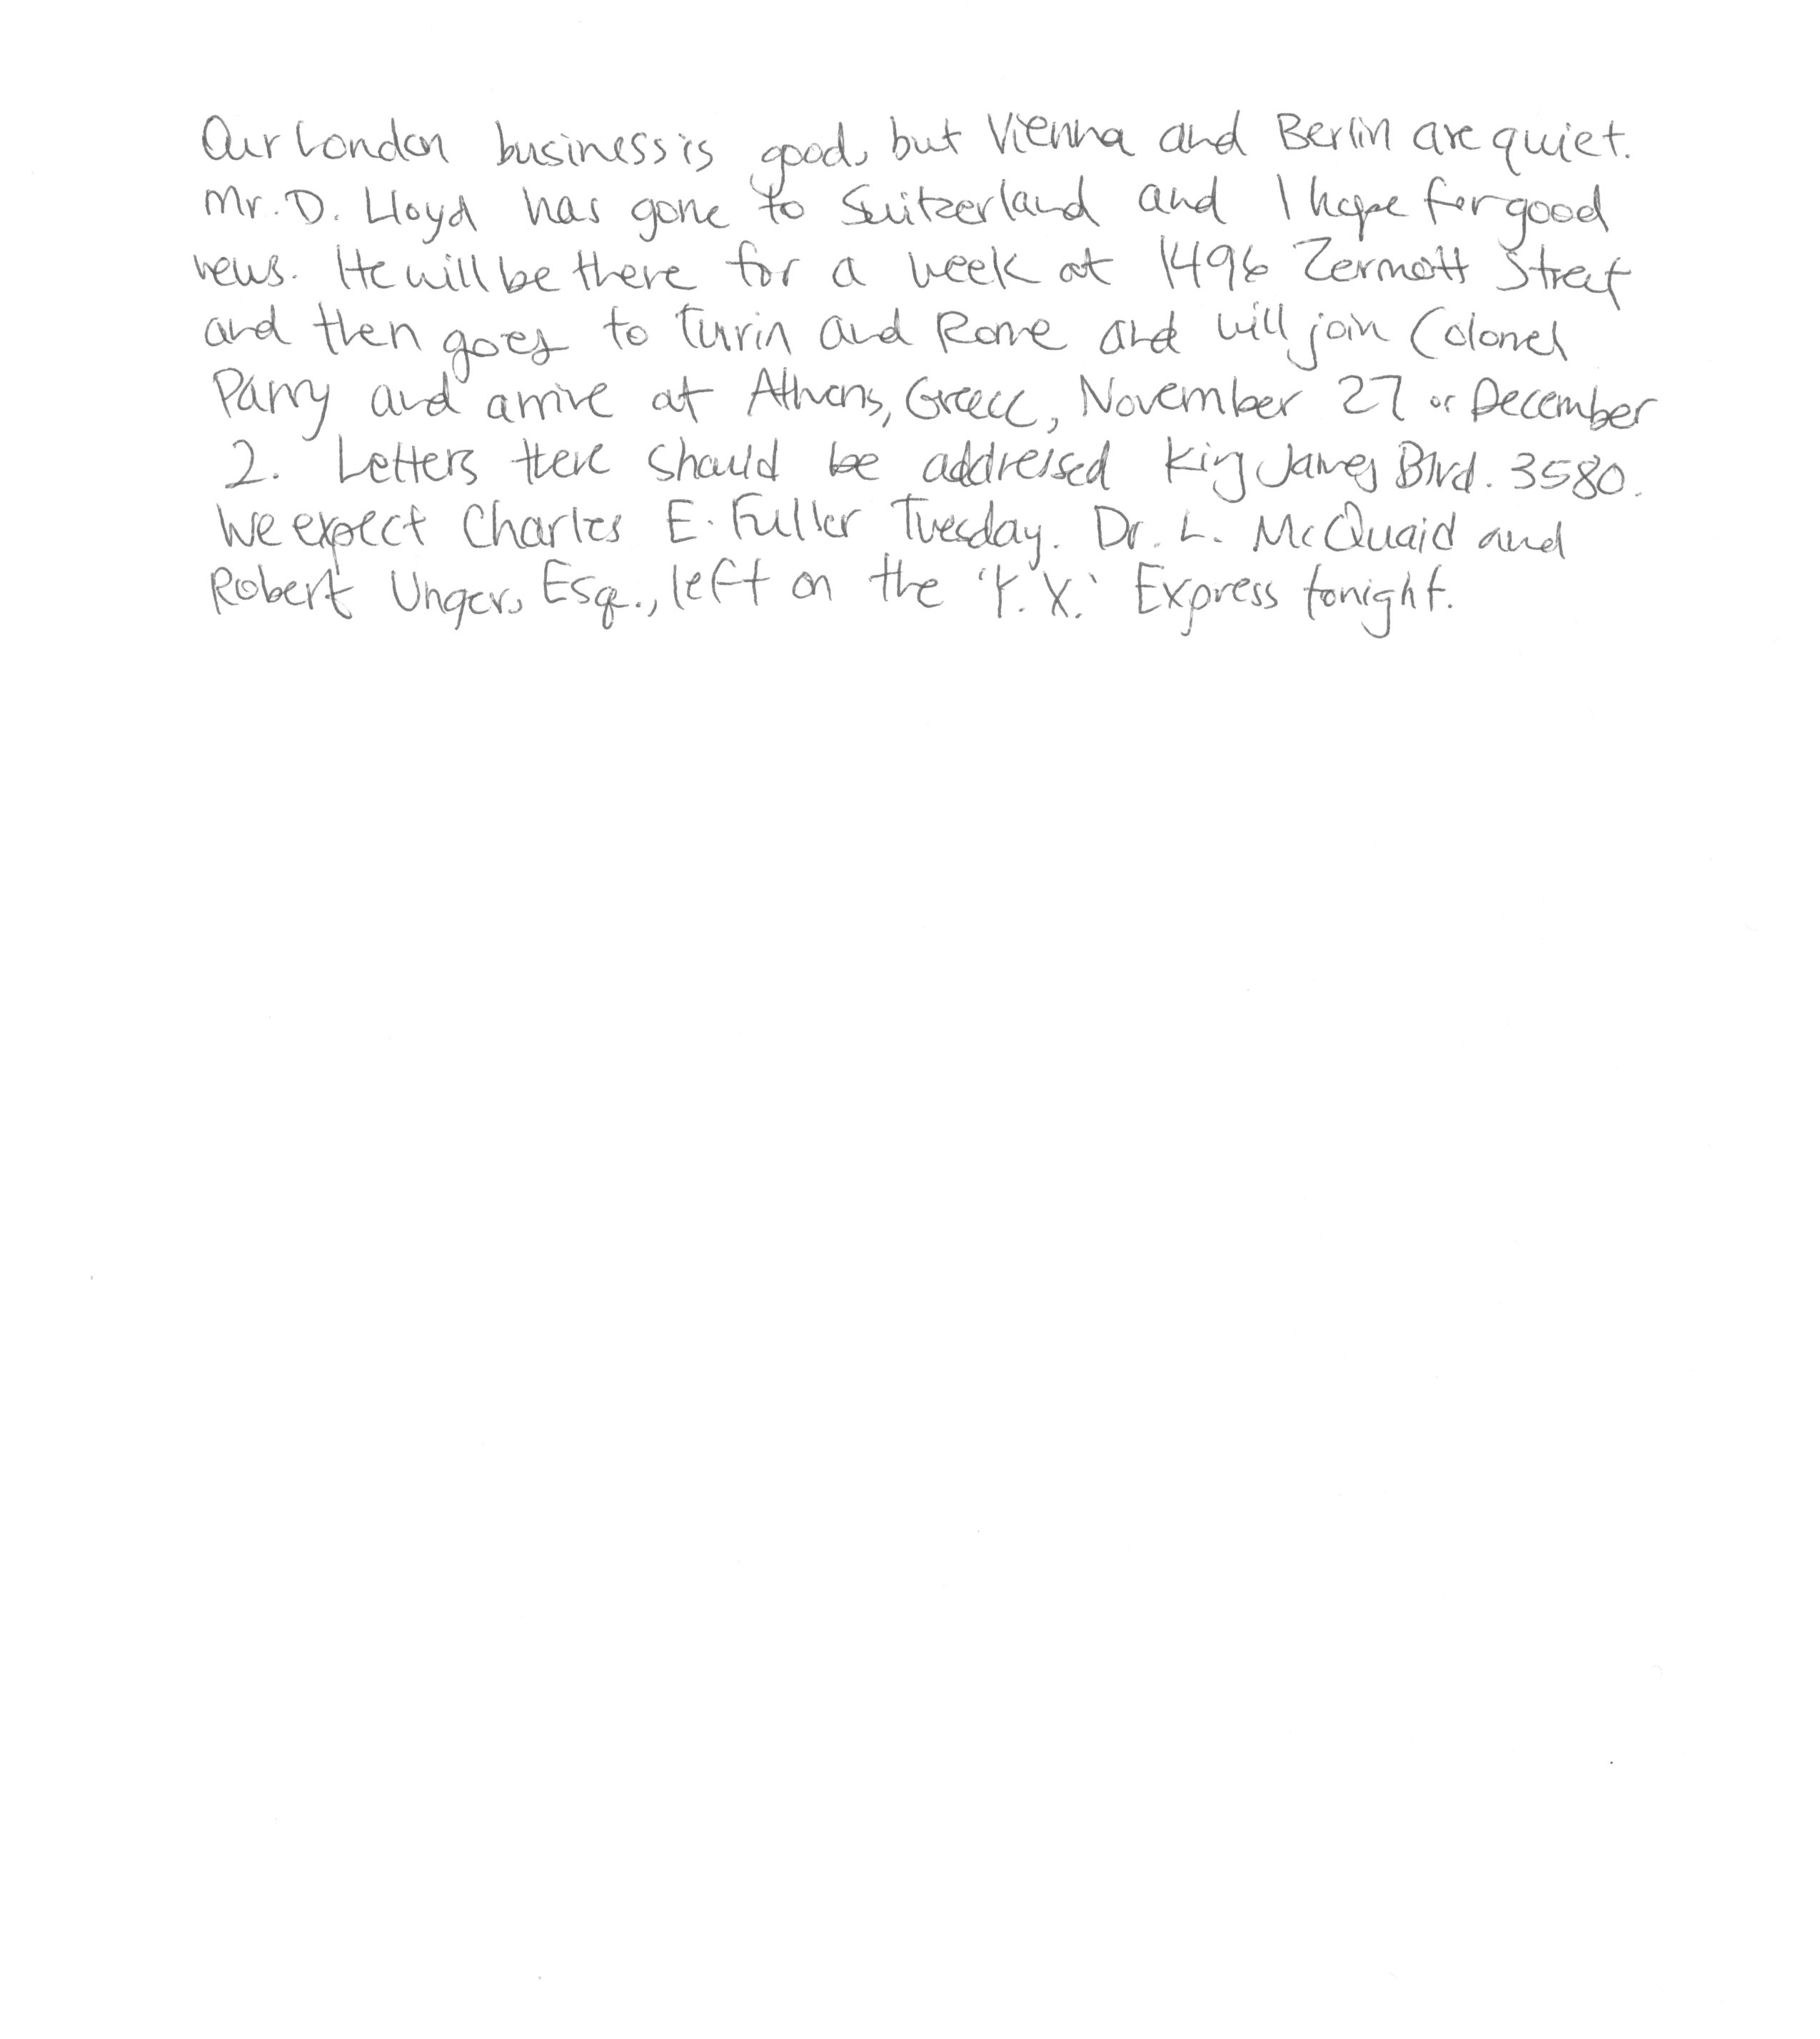 Our London business is good, but Vienna and Berlin are quiet.
Mr. D. Lloyd has gone to Switzerland and I hope for good
news. He will be there for a week at 1496 Zermott Street
and then goes to Turin and Rome and will join Colonel
Parry and arrive at Athens, Greece, November 27 or December
2. Letters there should be addressed King James Blvd. 3580.
We expect Charles E. Fuller Tuesday. Dr. L. McQuaid and
Robert Unger, Esq., left on the 'Y. X.' Express tonight.